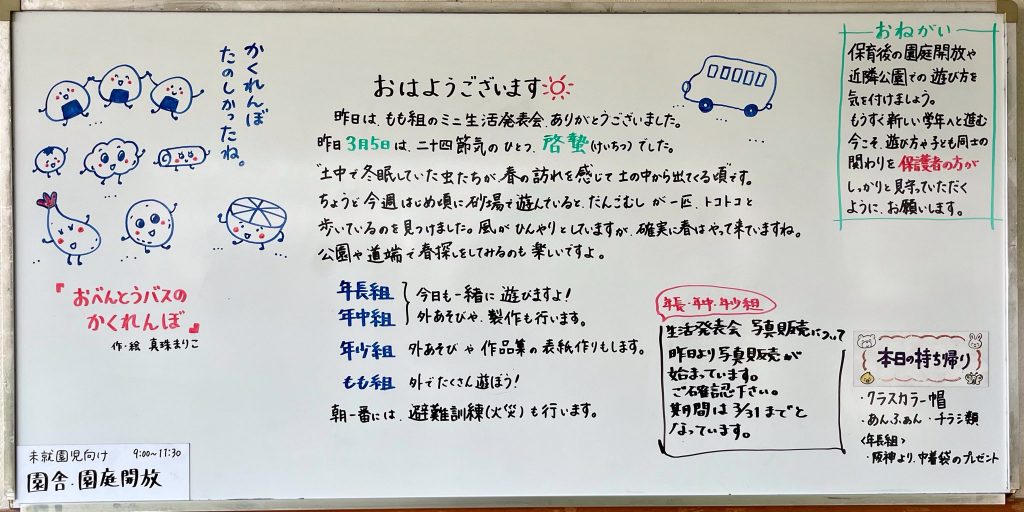 かくれんぼ
たのしかったね。
『おべんとうバスの
かくれんぼ』
作・絵 真珠まりこ
未就園児向け 9:00~11:30
園舎・園庭開放
おはようございます
昨日は、もも組のミニ生活発表会、ありがとうございました。
昨日3月5日は、二十四節気のひとつ、啓蟄(けいちつ)でした。
土中で冬眠していた虫たちが、春の訪れを感じて土の中から出てくる頃です。
ちょうど今週はじめ頃に砂場で遊んでいると、だんごむしが一匹、トコトコと
歩いているのを見つけました。風がひんやりとしていますが、確実に春はやって来ていますね。
公園や道端で春探しをしてみるのも楽しいですよ。
年長組 今日も一緒に遊びますよ!
年中組 外あそびや、製作も行います。
年少組 外あそびや作品集の表紙作りもします。
もも組 外でたくさん遊ぼう!
朝一番には、避難訓練(火災)も行います。
おねがい
保育後の園庭開放や
近隣公園での遊び方を
気を付けましょう。
もうすぐ新しい学年へと進む
今こそ、遊び方や子ども同士の
関わりを保護者の方が
しっかりと見守っていただく
ように、お願いします。
年長・年中・年少組
生活発表会 写真販売について
昨日より写真販売が
始まっています。
ご確認下さい。
期間は3/31までと
なっています。
本日の持ち帰り
・クラスカラー帽
・あんふぁん・チラシ類
<年長組>
・阪神より、巾着袋のプレゼント